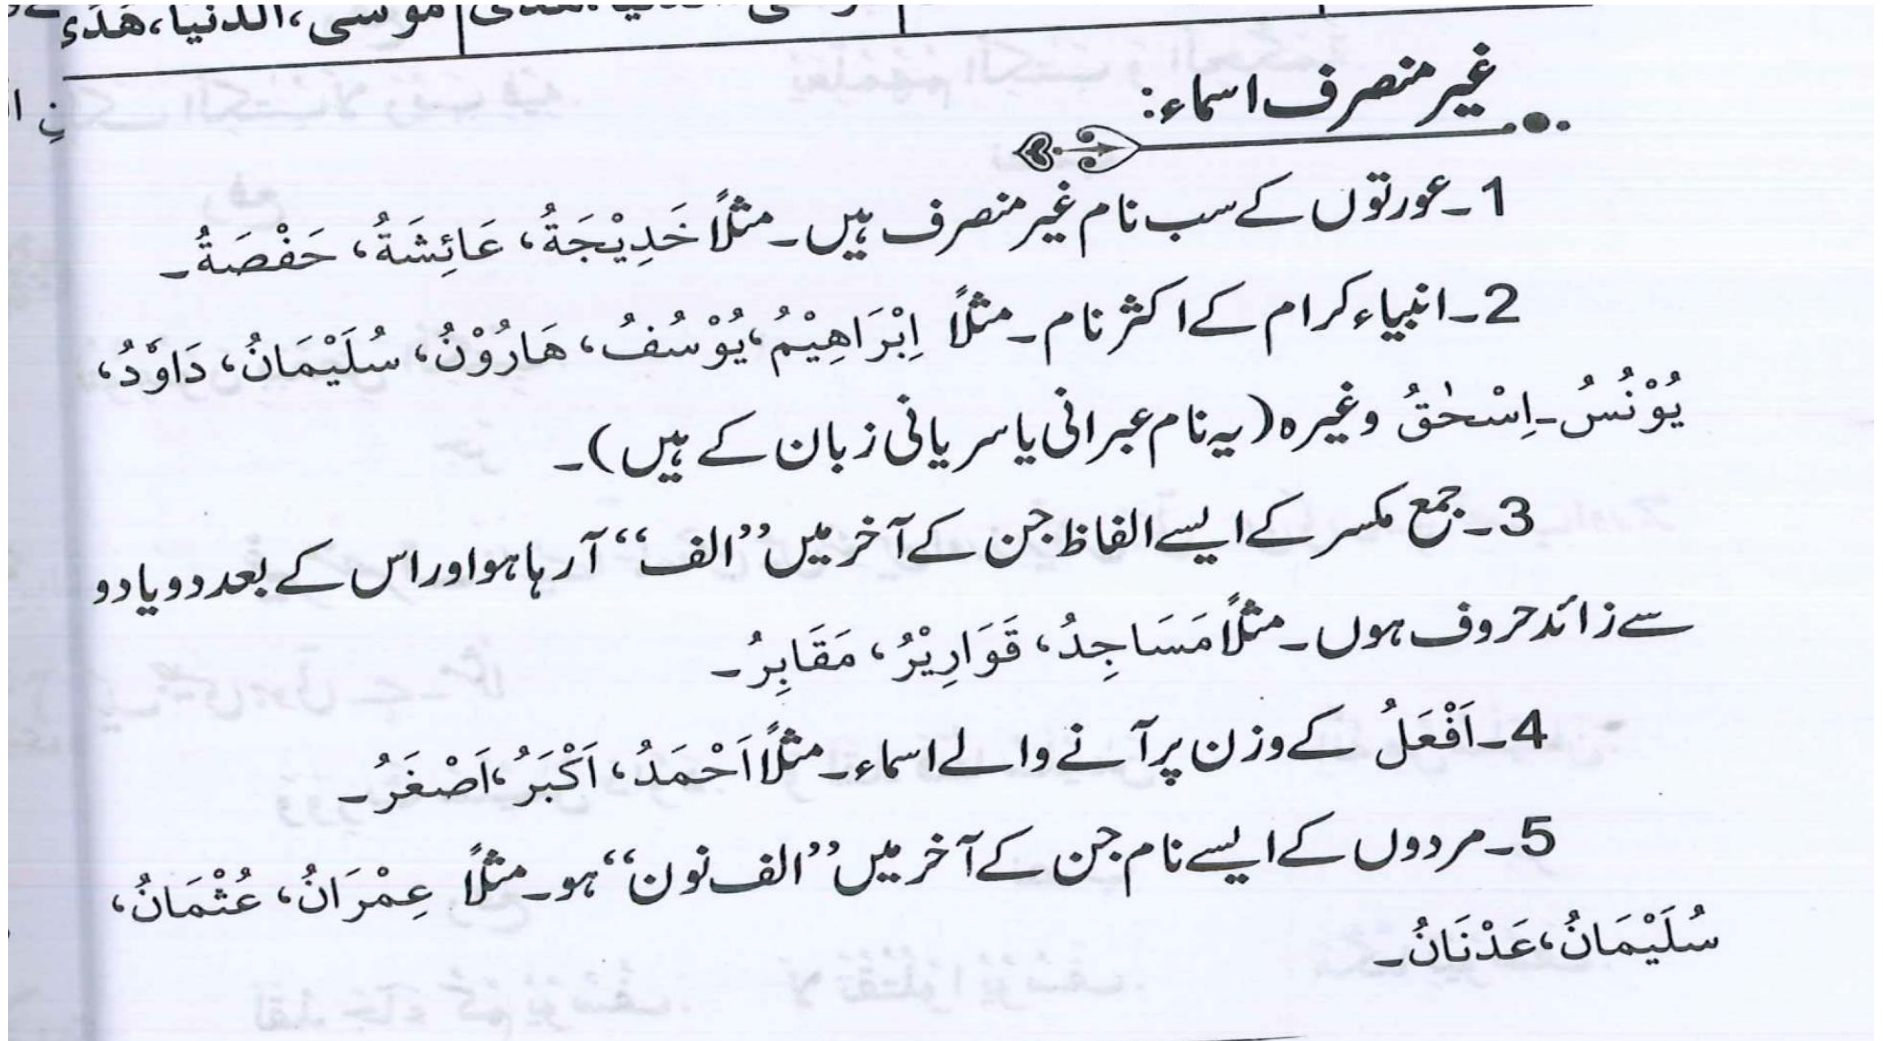 موسی، الدنیا، ھدی
غیر منصرف اسماء:
1۔ عورتوں کے سب نام غیر منصرف ہیں۔ مثلاً خَدِیْجَةُ، عَائِشَةُ، حَفْصَةُ۔
2۔ انبیاء کرام کے اکثر نام۔ مثلاً اِبْرَاهِیْمُ، یُوْسُفُ، هَارُوْنُ، سُلَیْمَانُ، دَاوٗدُ،
یُوْنُسُ۔ اِسْحٰقُ وغیرہ (یہ نام عبرانی یا سریانی زبان کے ہیں)۔
3۔ جمع مکسر کے ایسے الفاظ جن کے آخر میں ”الف“ آ رہا ہو اور اس کے بعد دو یا دو
سے زائد حروف ہوں۔ مثلاً مَسَاجِدُ، قَوَارِیْرُ، مَقَابِرُ۔
4۔ اَفْعَلُ کے وزن پر آنے والے اسماء۔ مثلاً اَحْمَدُ، اَکْبَرُ، اَصْغَرُ۔
5۔ مردوں کے ایسے نام جن کے آخر میں ”الف نون“ ہو۔ مثلاً عِمْرَانُ، عُثْمَانُ،
سُلَیْمَانُ، عَدْنَانُ۔